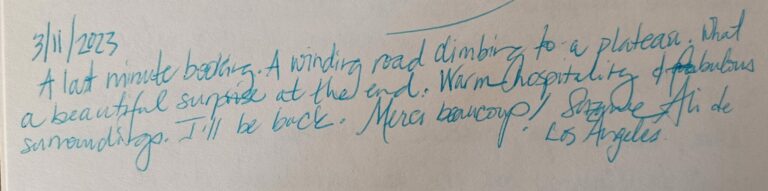 3/11/2023
A last minute booking. A winding road climbing to a plateau. What
a beautiful surprise at the end. Warm hospitality & fabulous
surroundings. I'll be back. Merci beaucoup! Suzanne Ali de
Los Angeles.